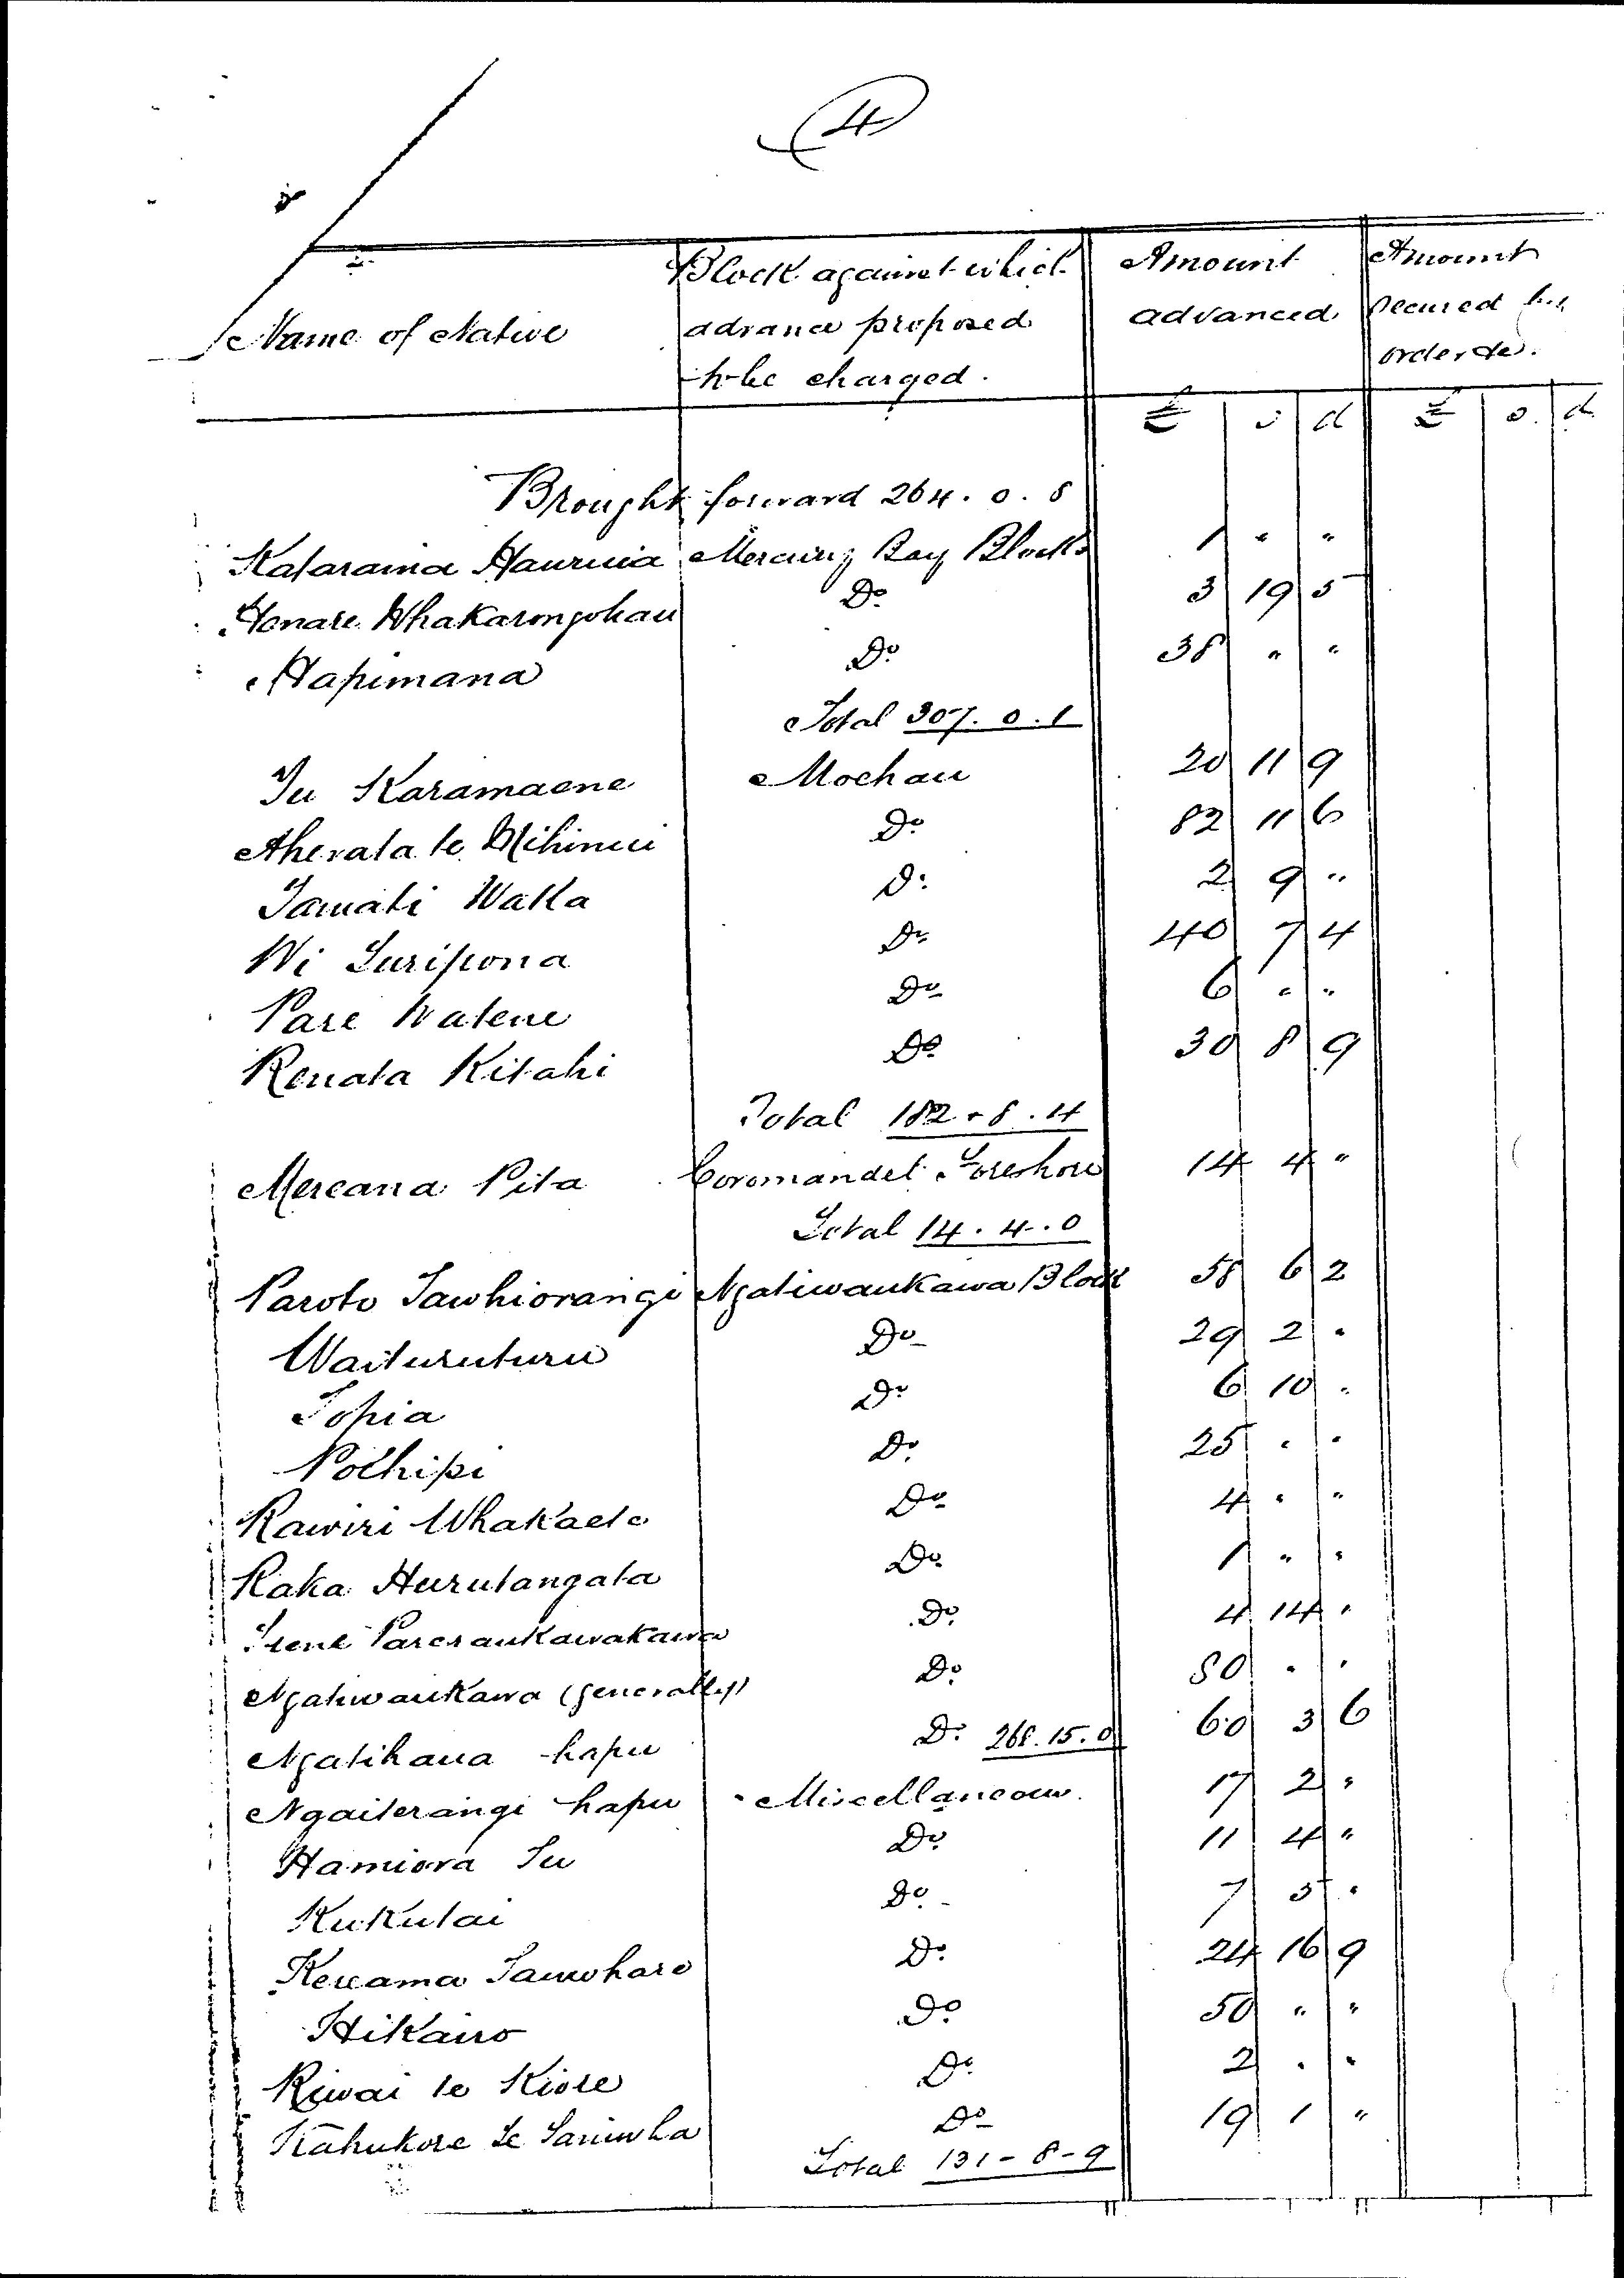 4
Name of Native | Block against which advance proposed to be charged. | Amount advanced | Amount secured by order &c.
£ s d £ s. d
Brought forward 264. 0. 8
Kataraina Hauruia Mercury Bay Block 1 " "
Honare Whakarongohau Do 3 19 5
Hapimana Do 38 " "
Total 307. 0. 1
Tu Karamaene Moehau 20 11 9
Aherata te Mihinui Do 82 11 6
Tamati Waka Do 2 9 "
Wi Turipona Do 40 7 4
Pare Watene Do 6 " "
Renata Kitahi Do 30 8 9
Total 182 - 8 . 4
Mereana Pita Coromandel Foreshore 14 4 "
Total 14 . 4 . 0
Paroto Tawhiorangi Ngatiwaukawa Block 58 6 2
Waituruturu Do 29 2 "
Topia Do 6 10 "
Poihipi Do 25 " "
Rawiri Whakaete Do 4 " "
Raka Hurutangata Do 1 " "
Irene Do 4 14 "
Ngatiwaukawa (generally) Do 80 " "
Ngatihaua hapu Do 268. 15. 0 60 3 6
Ngaiterangi hapu Miscellaneous 17 2 "
Hamiora Tu Do 11 4 "
Kukutai Do 7 5 "
Kereama Tauwhare Do 24 16 9
Hikairo Do 50 " "
Riwai te Kiore Do 2 " "
Kahukore Te Do 19 1 "
Total 131 - 8 - 9